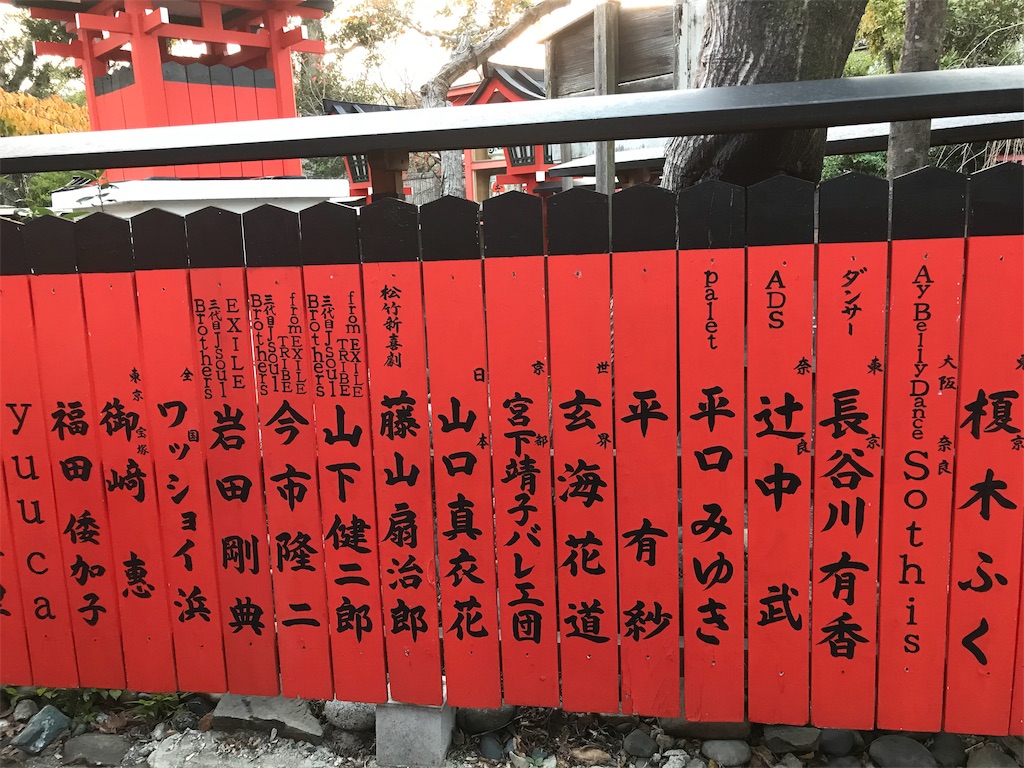 東京
榎木ふく
大阪 奈良
AyBellyDance Sothis
東京
ダンサー
長谷川有香
奈良
ADS
辻中武
palet
平口みゆき
平有紗
世界
玄海花道
京都
宮下靖子バレエ団
日本
山口真衣花
松竹新喜劇
藤山扇治郎
from EXILE TRIBE
三代目JSoul Brothers
山下健二郎
from EXILE TRIBE
三代目JSoul Brothers
今市隆二
EXILE
三代目JSoul Brothers
岩田剛典
全国
ワッショイ浜
東京 宝塚
御崎惠
福田倭加子
yuuca